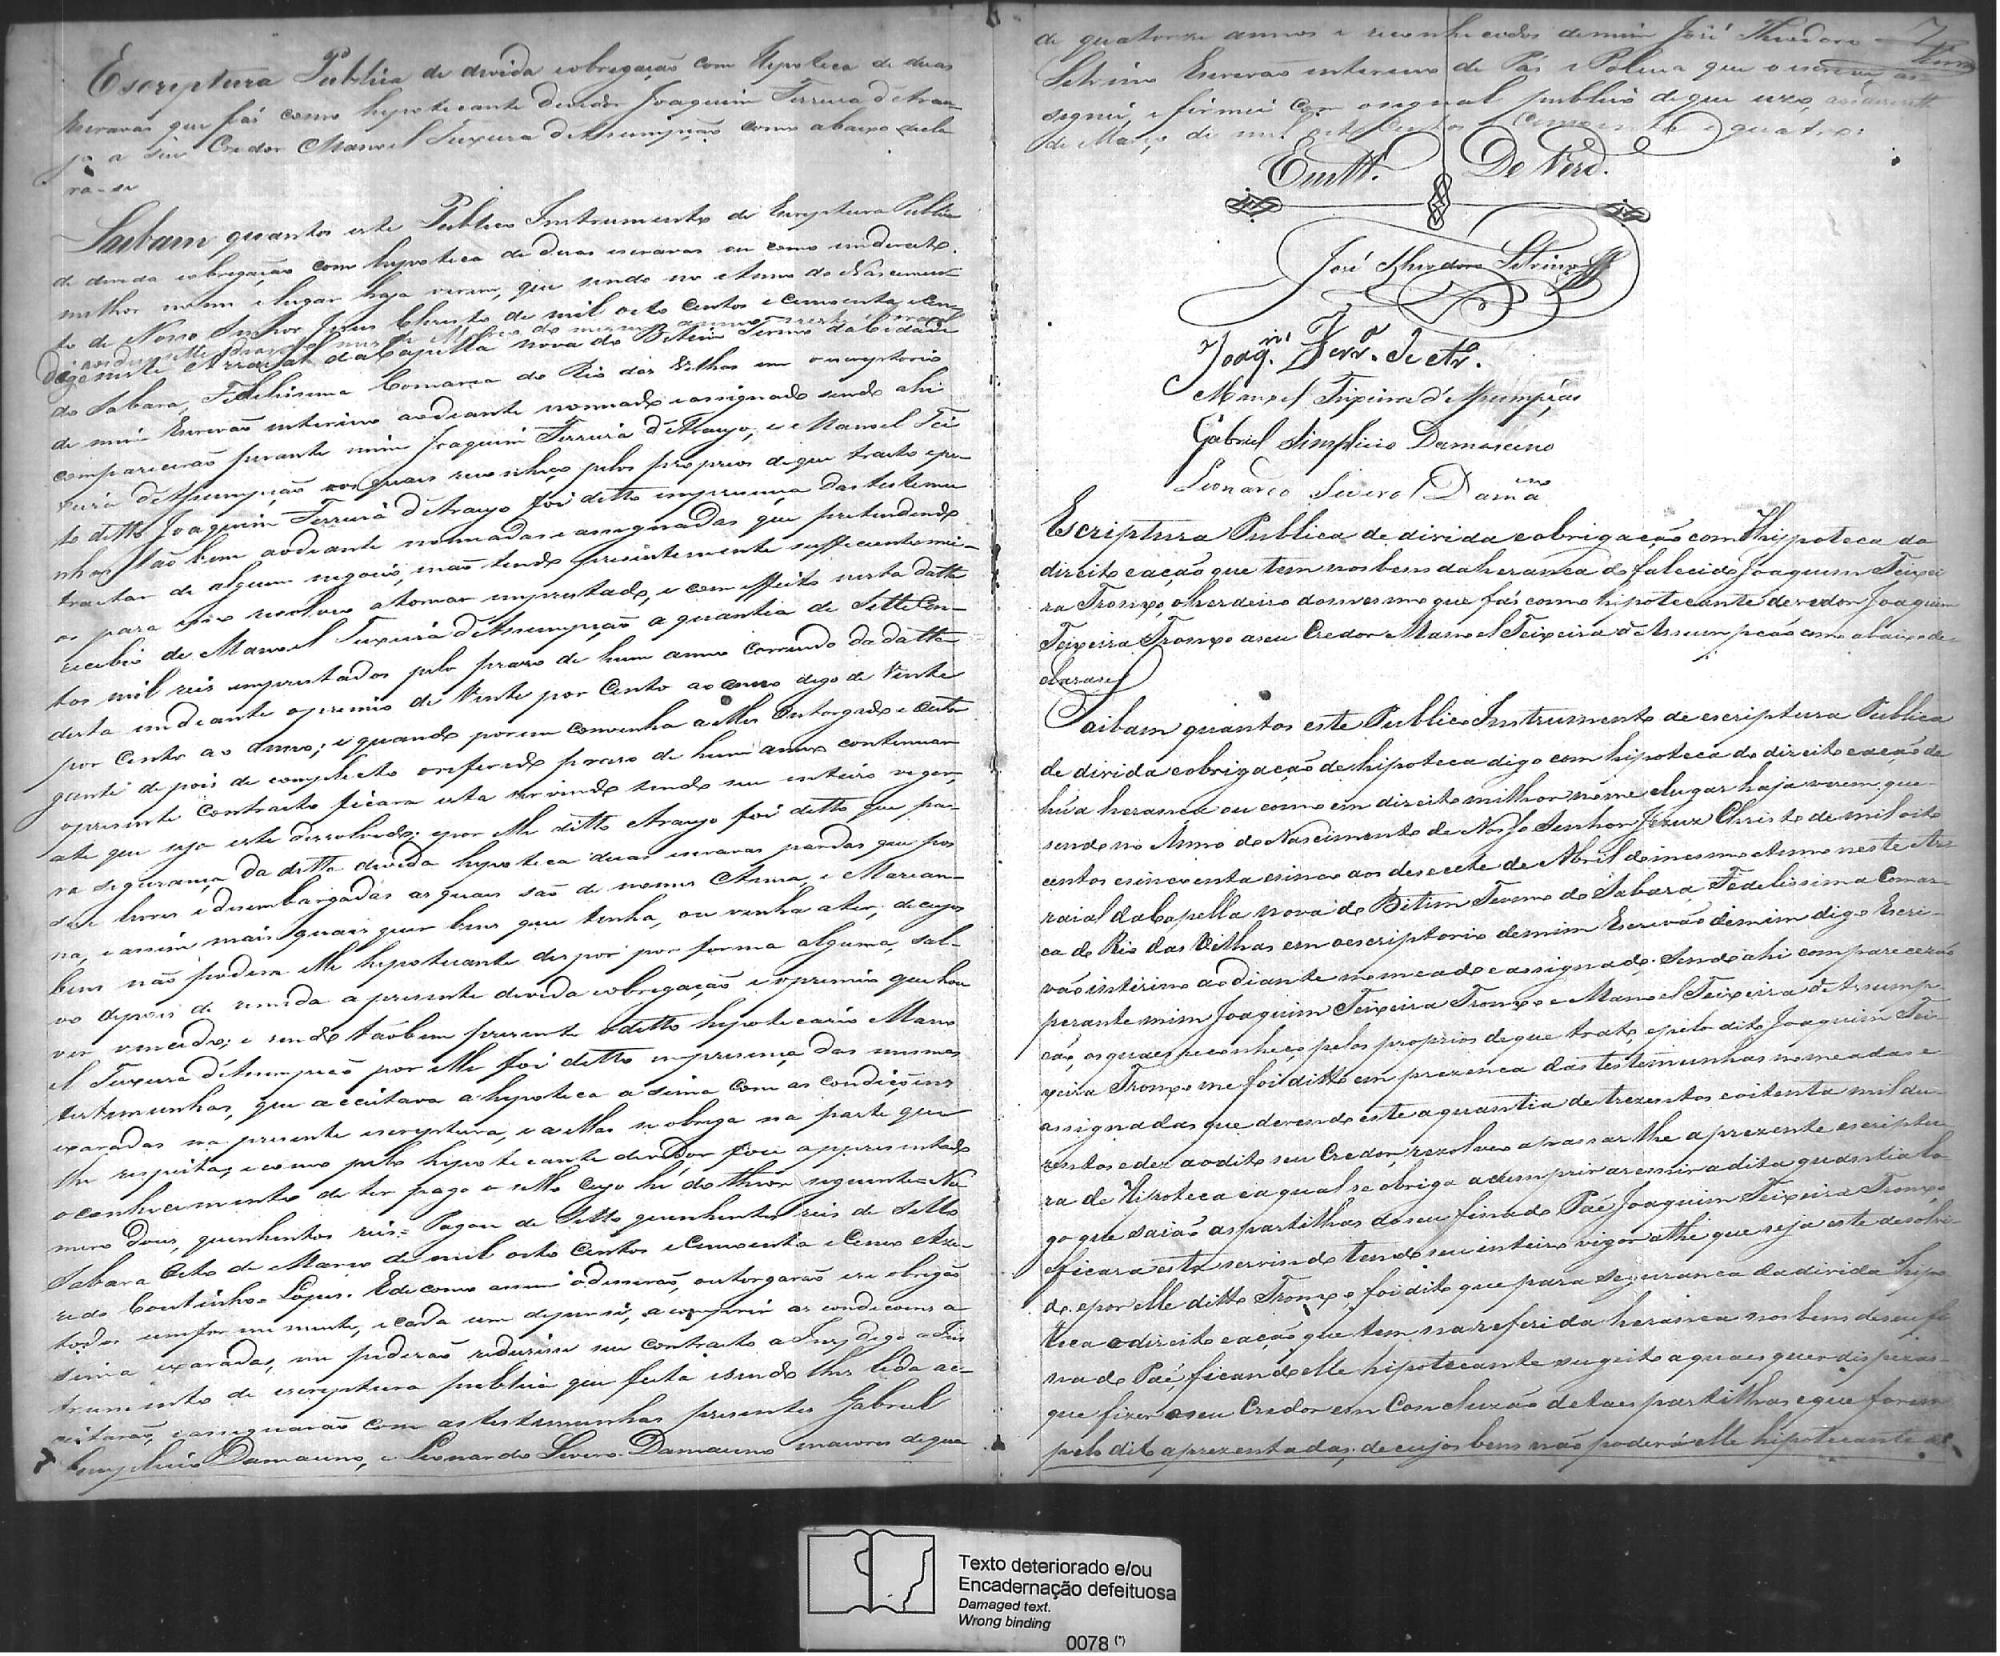 Escriptura Publica de devida eobregação com Hypoteca de duas
Escravas que fás como hypotecante devedor Joaquim Ferreira d'Arau-
jo a seu Credor Manoel Teixeira d'Assumpção como abaixo decla
ra-se
Saibam quantos este Publico Instrumento de Escriptura Publica
de devida eobregação com hypoteca de duas escravas ou como emdereito
milhor nome elugar haja verem, que sendo no Anno do Nascimen-
to de Nosso Senhor Jesus Christo de mil oito centos e cincoenta ecin-
co aos
digo neste Arraial da Capella nova do Betim Termo da Cidade
do Sabara, Fidelissima Comarca do Rio das Velhas em o escriptorio
de mim Escrevão interino aodeante nomeado eassignado sendo ahi
comparecerão perante mim Joaquim Ferreira d'Araujo, e Manoel Tei
xeira d'Assumpção aos quaes reconheço pelos proprios deque tracto epe-
lo ditto Joaquim Ferreira d'Araujo foi ditto empresença das testemu
nhas tão bem aodeante nomeadas eassignadas que pretendendo
tractar de algum negocio, não tendo presentemente sufficientes mei-
os para isso resolveo atomar emprestado, e com effeito nesta datta
recebeo de Manoel Teixeira d'Assumpção a quantia de Sette Cen-
tos mil reis emprestados pelo praso de hum anno correndo da datta
desta emdeante opremio de Vinte por Cento ao anno digo de Vinte
por Cento ao anno; e quando porem convenha aelles Outorgado e Outor
gante depois de completo oreferido praso de hum anno continuar
opresente contracto ficara esta servindo tendo seu inteiro vigor,
ate que seja este dissolvido; epor elle ditto Araujo foi ditto que pa-
ra segurança da ditta devida hypoteca duas escravas pardas que pos
sue livres edesembargadas as quais são de nomes Anna, e Marian-
na, e assim mais quais quer bens que tenha, ou venha ater; de cujos
bens não podera elle hypotecante despor por forma alguma, sal-
vo depois de remida a presente devida eobregação eopremio que hou
ver vencido; e sendo tãobem presente oditto hypotecario Mano
el Teixeira d'Assumpção por elle foi ditto empresença das mesmas
testemunhas, que acceitava ahypoteca asima com as condiçoens
exaradas na presente escreptura, e aellas se obriga na parte que
lhe respeita, ecomo pelo hypotecante devedor foce appresentado
oconhecimento de ter pago o sello cujo hé do theor seguinte= Nu-
mero Dous, quenhentos reis= Pagou de Sello quenhentos reis de Sello
Sabara Oito de Março de mil oito centos eCincoenta eCinco Aze-
redo Coutinho= Lopes. Edecomo assim odisserão, outorgarão ese obregão
todos conforme mente, ecada um depersi, acomprir as condicoens a
sima exaradas, me pederão redusisse seu contracto a Inz digo a Ins
trumento de escreptura publica que feita esendo lhes lida ac-
ceitarão, eassignarão com astestemunhas presentes Gabriel
Semplicio Damaceno, e Leonardo Severo Damaceno maiores de qua
de quatorze annos e reconhecidos demim José Theodoro
Silvino Escrevão interino de Pas ePolicia que oescrevi as
signei, efirmei com osignal publico deque uzo,
de Março de mil oito Centos e Cincoenta e quatro:
Em tt. De Verd.
José Theodoro Silvino
Joaqm. Ferrª. de Ar.
Manoel Teixeira d'Assumpção
Gabriel Simplicio Damasceno
Leonardo Severo Damano
Escriptura Publica de divida eobrigação com Hypoteca do
direito eacão que tem nosbens daherança do falecido Joaquim Teixei
ra Tronxo, oherdeiro domesmo que fás como hipotecante devedor Joaquim
Teixeira Tronxo aseu Credor Manoel Teixeira d'Assumpcão como abaixo de-
clarase
Saibam quantos este Publico Instrumento de escriptura Publica
de divida eobrigação de hipoteca digo com hipoteca do direito eacão de
húa heranca ou como em direito milhor nome elugar haja verem que
sendo no Anno do Nascimento de Nosso Senhor Jezus Christo de mil oito
centos esincoenta esinco aos desecete de Abril domesmo Anno neste Ar-
raial da Capella nova do Bitim Termo do Sabará, Fedelissima Comar-
ca do Rio das Velhas em oescriptorio demim Escrevão demim digo Escri-
vão interino aodiante nomeado eassignado. Sendo ahi comparecerão
perante mim Joaquim Teixeira Tronxo e Manoel Teixeira d'Assump-
cão, osquaes reconheço pelos proprios deque trato, epelo dito Joaquim Tei-
xeira Tronxo me foi ditto em prezenca das testemunhas nomeadas e
assignadas que devendo este aquantia de trezentos eoitenta mil du-
zentos edez aodito seu Credor, rezolveo apassar lhe aprezente escriptu
ra de Hipoteca eaqual se obriga acomprir aremir adita quantia lo-
go que saião aspartilhas doseu finado Páe Joaquim Teixeira Tronxo
eficara esta servindo tendo seu inteiro vigor athe que seja este desolvi-
do, epor elle ditto Tronxo, foi dito que para segurança dadivida hipo
teca odireito eacão que tem na referida herança nos bens deseu fi
nado Páe, ficando elle hipotecante sugeito aquaes quer dispezas
que fizer oseu Credor em Concluzão detaes partilhas eque forem
pelo dito aprezentadas, de cujos bens não poderá elle hipotecante
Texto deteriorado e/ou
Encadernação defeituosa
Damaged text.
Wrong binding
0078 (*)